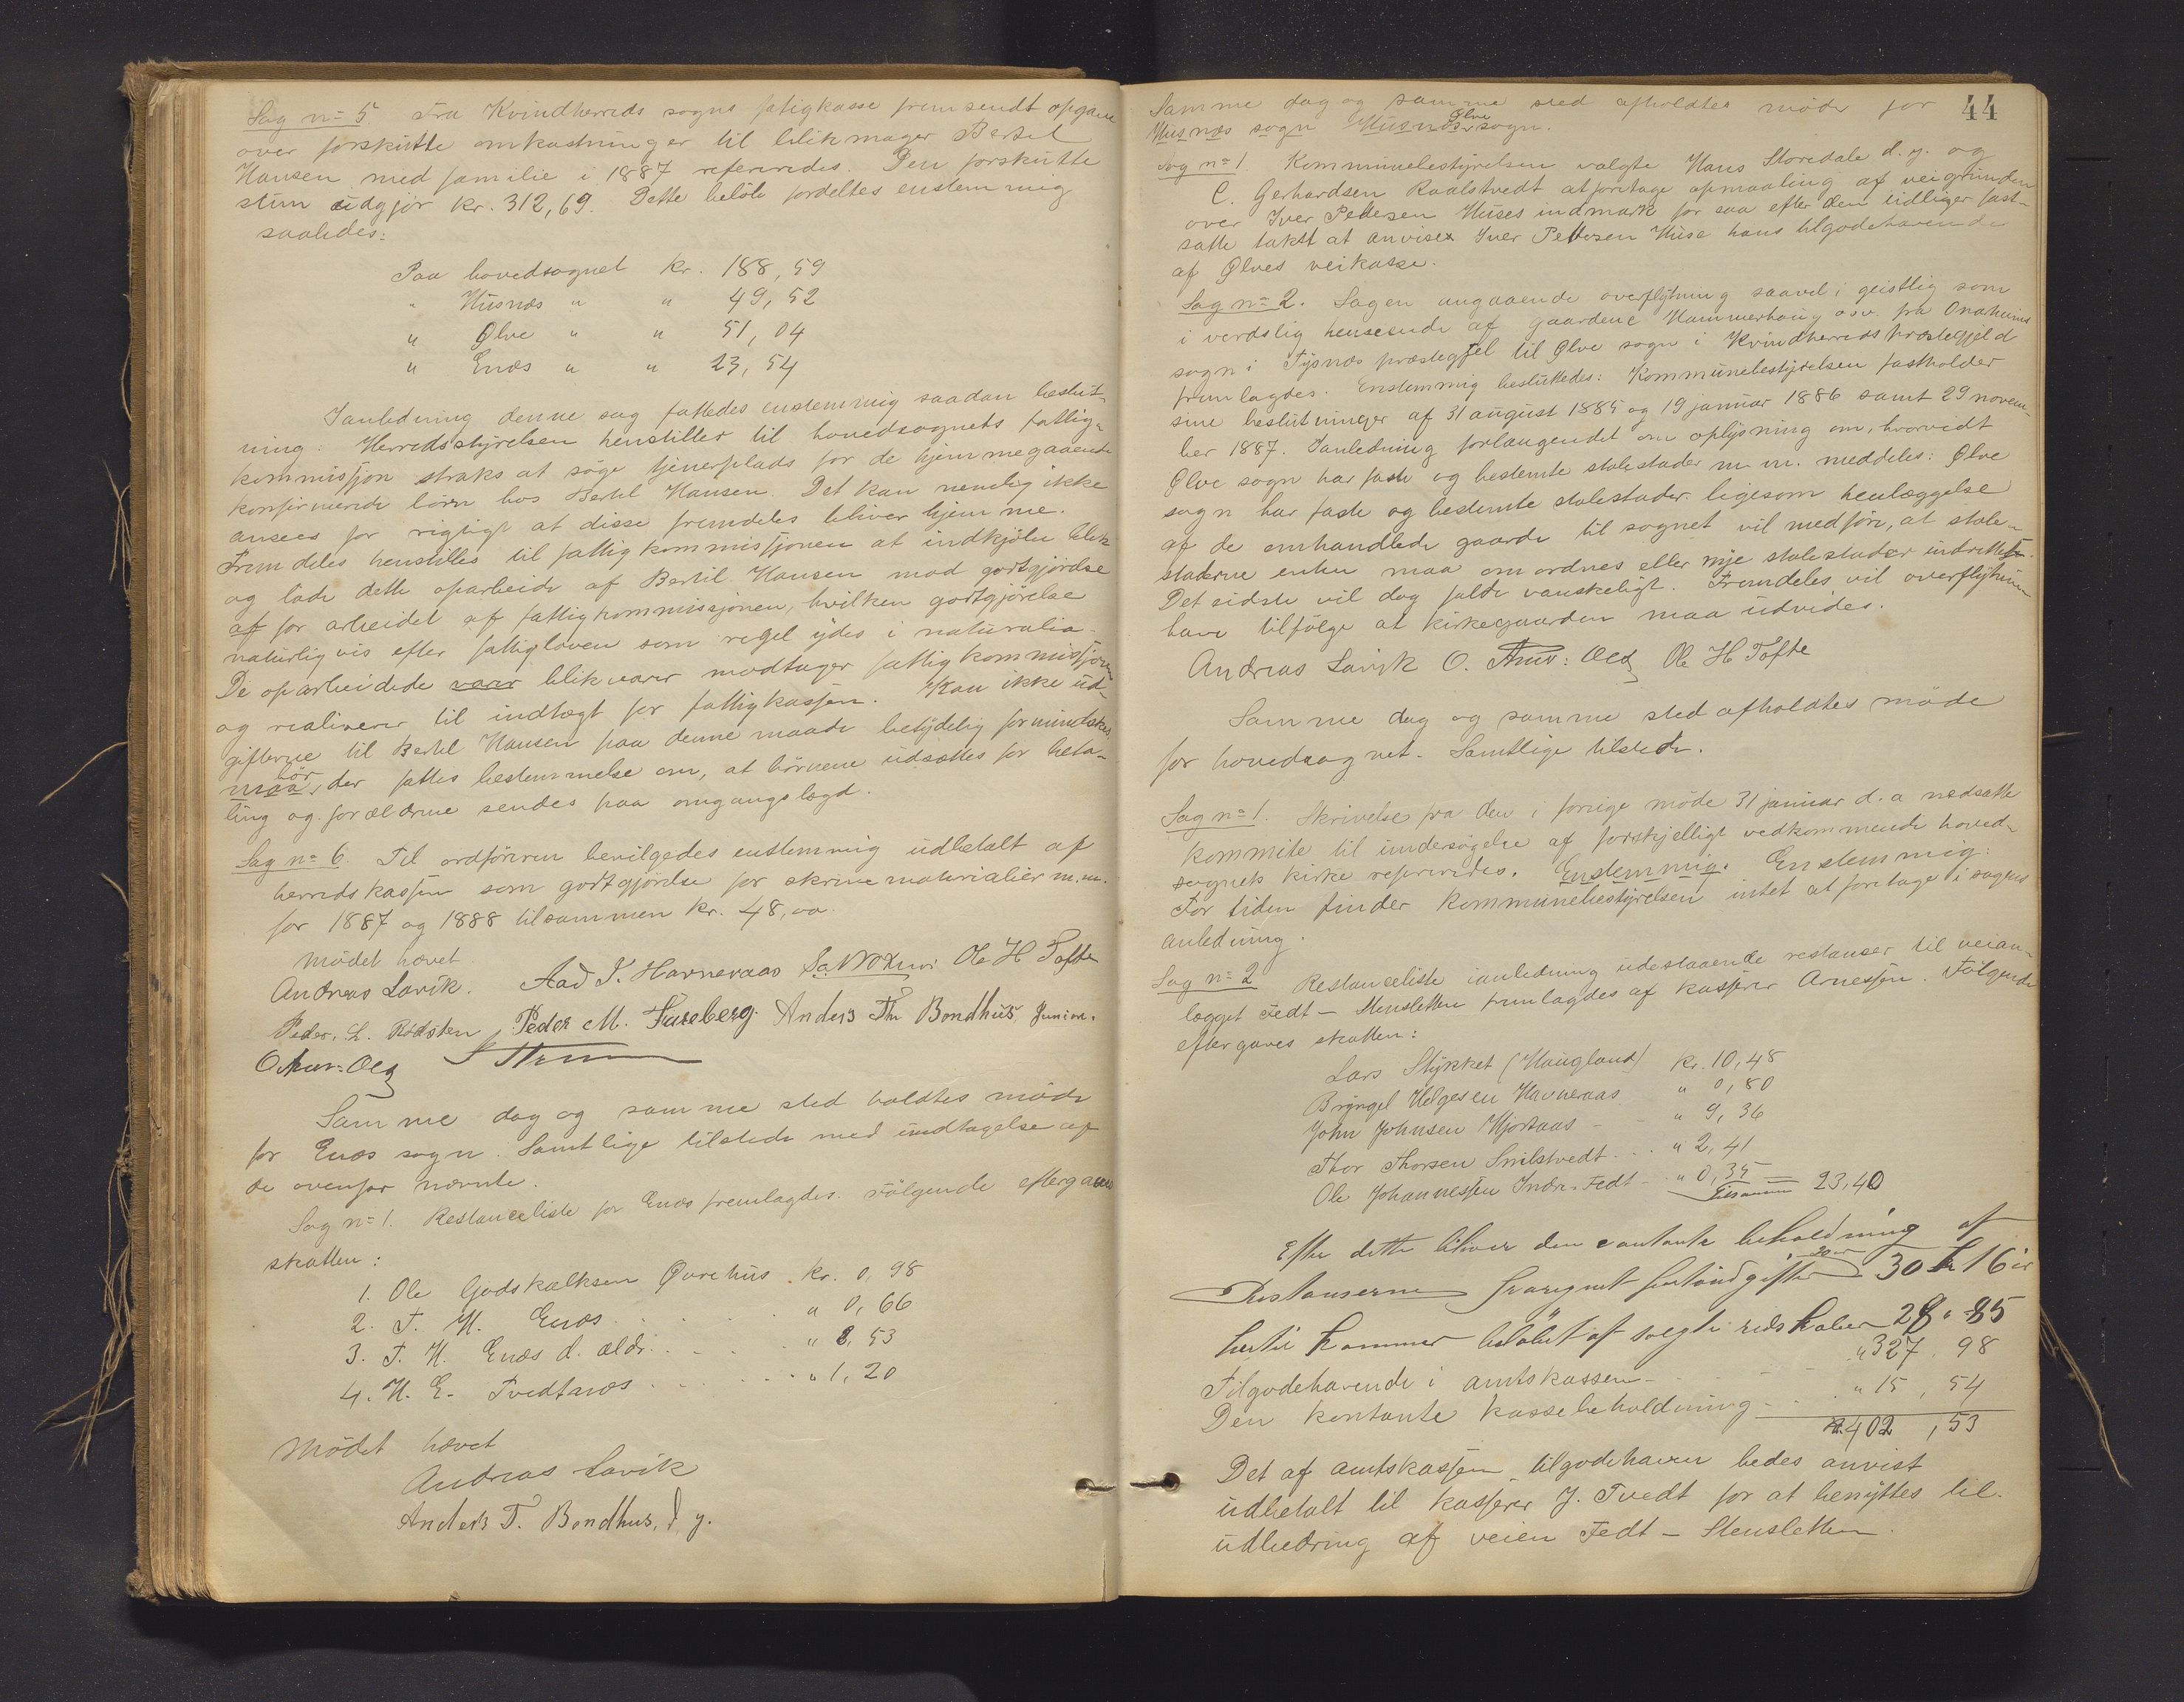 Sag no 5 Fra Kvindherreds sogns fatigkasse fremsendt opgave
over forskutte omkostninger til blikmager Bertel
Hansen med familie i 1887 refereredes. Den forskutte
sum udgjør kr. 312,69. Dette beløb fordeltes enstemmig
saaledes:
Paa hovedsognet kr. 188,59
" Husnæs " " 49,52
" Ølve " " 51,04
" Enæs " " 23,54
Ianledning denne sag fattedes enstemmig saadan beslut-
ning: Herredsstyrelsen henstiller til hovedsognets fattig-
kommissjon straks at søge tjenerplads for de hjemmegaaende
konfirmerede børn hos Bertel Hansen. Det kan nemlig ikke
ansees for rigtigt at disse fremdeles bliver hjemme.
Fremdeles henstilles til fattigkommissjonen at indkjøbe blik
og lade dette oparbeide af Bertil Hansen mod godtgjørelse
af for arbeidet af fattigkommissjonen, hvilken godtgjørelse
naturligvis efter fattigloven som regel ydes i naturalia.
De oparbeidede varer blikvarer modtager fattigkommissjonen
og realiserer til indtægt for fattigkassen. Kan ikke ud-
gifterne til Bertel Hansen paa denne maade betydelig formindskes
maa bør der fattes bestemmelse om, at børnene udsættes for beta-
ling og forældrene sendes paa omgangslægd.
Sag no 6. Til ordføreren bevilgedes enstemmig udbetalt af
herredskassen som godtgjørelse for skrivematerialier m.m.
for 1887 og 1888 tilsammen kr. 48,00.
Mødet hævet
Andreas Lavik. Aad T. Harnevaas Ole H Tofte
Peder. L. Rødsten Peder M. Fureberg. Anders Th Bondhus, Junior.
O Amr: Oeg
Samme dag og samme sted holdtes møde
for Enæs sogn. Samtlige tilstede med undtagelse af
de ovenfor nævnte.
Sag no 1. Restanceliste for Enæs fremlagdes. Følgende eftergaves
skatten:
1. Ole Godskalksen Ovrehus. kr. 0,98
2. T. H. Enæs . . . " 0,66
3. T. H. Enæs d. ældr. . . . " 2,53
4. H. E. Tvedtnæs . . . " 1,20
Mødet hævet
Andreas Lavik
Anders T. Bondhus, d. y.
44
Samme dag og samme sted afholdtes møde for
Husnæs sogn Husnæs Ølve sogn.
Sag no 1 Kommunebestyrelsen valgte Hans Storedale d. y. og
C. Gerhardsen Raalstvedt at foretage opmaaling af veigrunden
over Iver Pedersen Huses indmark for saa efter den tidligere fast-
satte takst at anvises Iver Pettersen Huse hans tilgodehavende
af Ølves veikasse.
Sag no 2. Sagen angaaende overflytning saavel i geistlig som
i verdslig henseende af gaardene Hammerhaug osv. fra Onaheims
sogn i Tysnæs præstegjel til Ølve sogn i Kvindherreds præstegjeld
fremlagdes. Enstemmig besluttedes: Kommunebestyrelsen fastholder
sine beslutninger af 31 august 1885 og 19 januar 1886 samt 29 novem-
ber 1887. Ianledning forlangendet om oplysning om, hvorvidt
Ølve sogn har faste og bestemte stolestader m. m. meddeles: Ølve
sogn har faste og bestemte stolestader ligesom henlæggelse
af de omhandlede gaarde til sognet vil medføre, at stole-
staderne enten maa omordnes eller nye stolestader indrettes.
Det sidste vil dog falde vanskeligt. Fremdeles vil overflytning
have tilfølge at kirkegaarden maa udvides.
Andreas Lavik O. Amr: Oeg Ole H Tofte
Samme dag og samme sted afholdtes møde
for hovedsognet. Samtlige tilstede.
Sag no 1. Skrivelse fra den i forrige møde 31 januar d. a nedsatte
kommite til undersøgelse af forskjelligt vedkommende hoved-
sognets kirke refereredes. Enstemmig. Enstemmig:
For tiden finder kommunebestyrelsen intet at foretage i sagens
anledning.
Sag no 2 Restanceliste ianledning udestaaende restanser til veian-
lægget Fedt - Stensletten fremlagdes af kasserer Arnessen. Følgende
eftergaves skatten:
Lars Stykket (Haugland) kr. 10,48
Brynjel Helgesen Havneraas " 0,80
John Johnsen Hjortaas - " 9,36
Thor Thorsen Smilstvedt . . " 2,41
Ole Johannessen Indre-Fedt - " 0,35 Tilsammen 23,40
Efter dette bliver den contante beholdning af
Restanserne fraregnet 30 kr 16 ør
hertil kommer beløbet af solgte redskaber 28 " 85
Tilgodehavende i amtskassen - " 327,98
Den kontante kassebeholdning - " 15,54
kr. 402,53
Det af amtskassen tilgodehaven bedes anvist
udbetalt til kasserer J. Tvedt for at benyttes til
udbedring af veien Fedt - Stensletten.